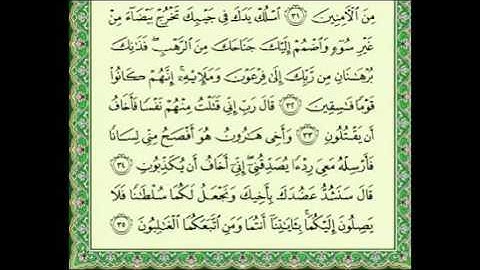 مِنَ ٱلْـَٔامِنِينَ ٣١ ٱسْلُكْ يَدَكَ فِى جَيْبِكَ تَخْرُجْ بَيْضَآءَ مِنْ
غَيْرِ سُوٓءٍ وَٱضْمُمْ إِلَيْكَ جَنَاحَكَ مِنَ ٱلرَّهْبِ ۖ فَذَٰنِكَ
بُرْهَٰنَانِ مِن رَّبِّكَ إِلَىٰ فِرْعَوْنَ وَمَلَإِي۟هِۦٓ ۚ إِنَّهُمْ كَانُوا۟
قَوْمًا فَٰسِقِينَ ٣٢ قَالَ رَبِّ إِنِّى قَتَلْتُ مِنْهُمْ نَفْسًا فَأَخَافُ
أَن يَقْتُلُونِ ٣٣ وَأَخِى هَٰرُونُ هُوَ أَفْصَحُ مِنِّى لِسَانًا
فَأَرْسِلْهُ مَعِىَ رِدْءًا يُصَدِّقُنِىٓ ۖ إِنِّىٓ أَخَافُ أَن يُكَذِّبُونِ ٣٤
قَالَ سَنَشُدُّ عَضُدَكَ بِأَخِيكَ وَنَجْعَلُ لَكُمَا سُلْطَٰنًا فَلَا
يَصِلُونَ إِلَيْكُمَا ۚ بِـَٔايَٰتِنَآ أَنتُمَا وَمَنِ ٱتَّبَعَكُمَا ٱلْغَٰلِبُونَ ٣٥